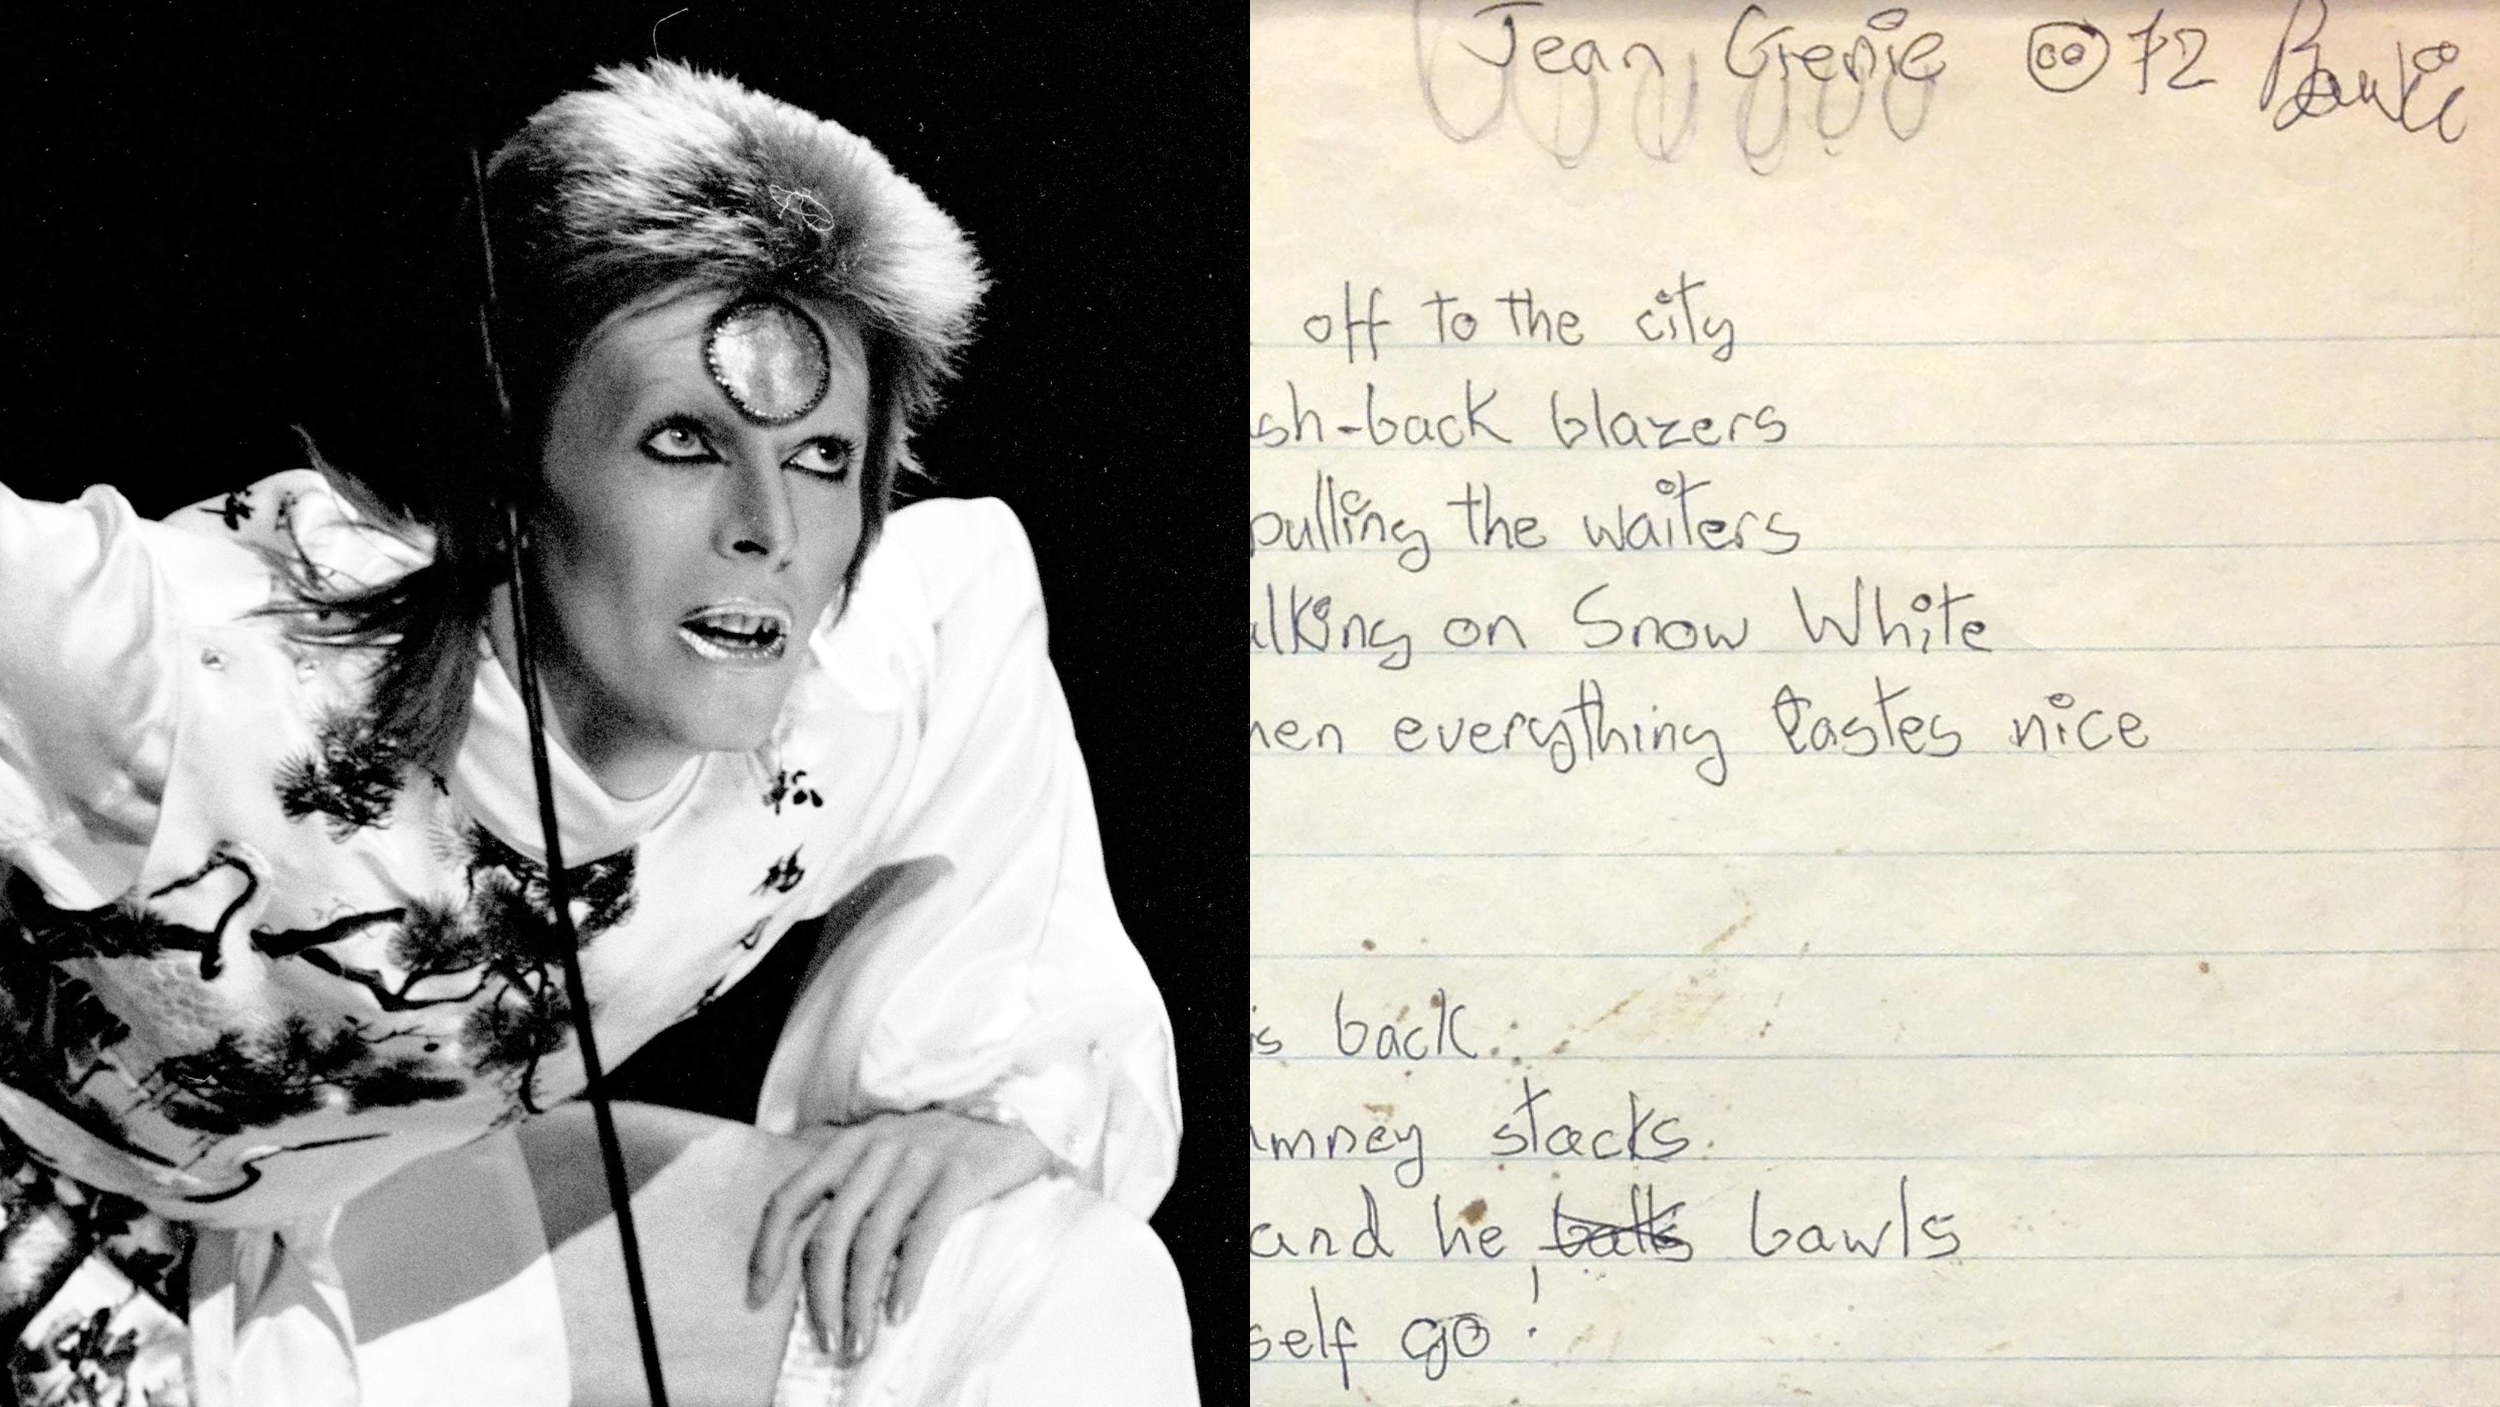 Jean Genie 72 Bowie
off to the city
sh-back blazers
pulling the waiters
lking on Snow White
hen everything tastes nice
is back
mney stacks
and he balls bawls
self go!